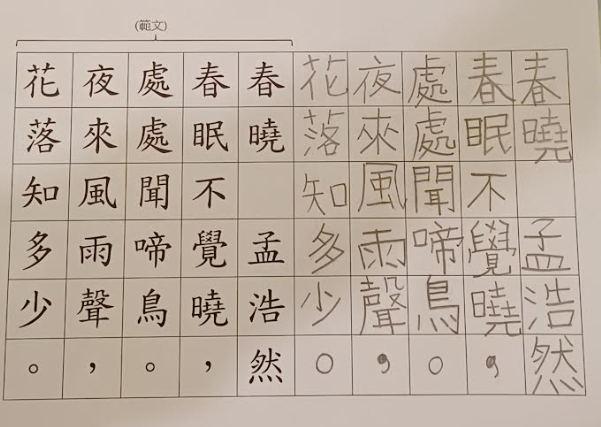 (範文)
春曉 孟浩然
春眠不覺曉，
處處聞啼鳥。
夜來風雨聲，
花落知多少。
春曉 孟浩然
春眠不覺曉，
處處聞啼鳥。
夜來風雨聲，
花落知多少。